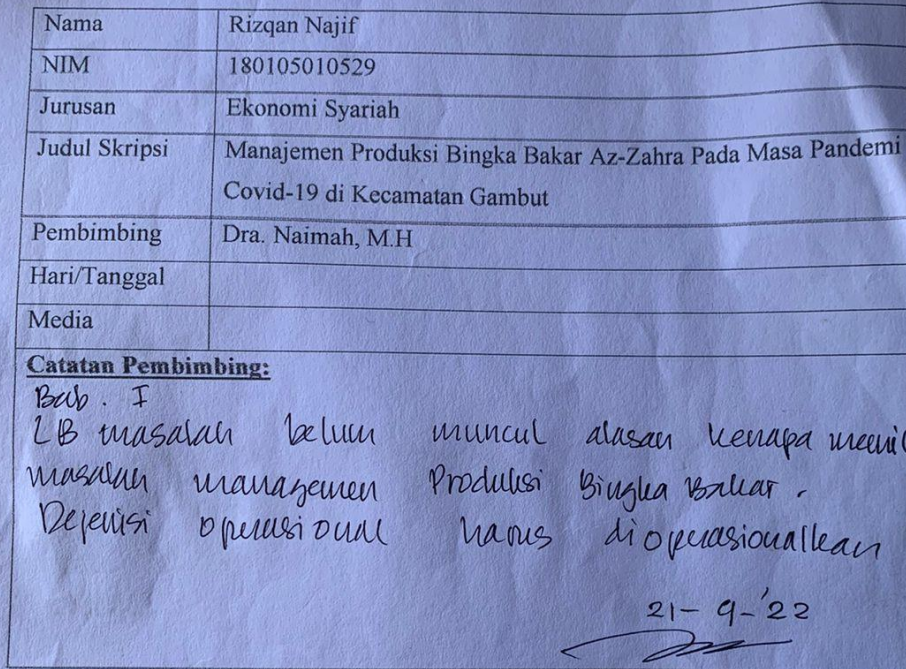 Nama Rizqan Najif
NIM 180105010529
Jurusan Ekonomi Syariah
Judul Skripsi Manajemen Produksi Bingka Bakar Az-Zahra Pada Masa Pandemi
Covid-19 di Kecamatan Gambut
Pembimbing Dra. Naimah, M.H
Hari/Tanggal
Media
Catatan Pembimbing:
Bab. I
LB masalah belum muncul alasan kenapa
masalah managemen Produksi Bingka Bakar.
Defenisi operasional harus dioperasionalkan
21-9-'22